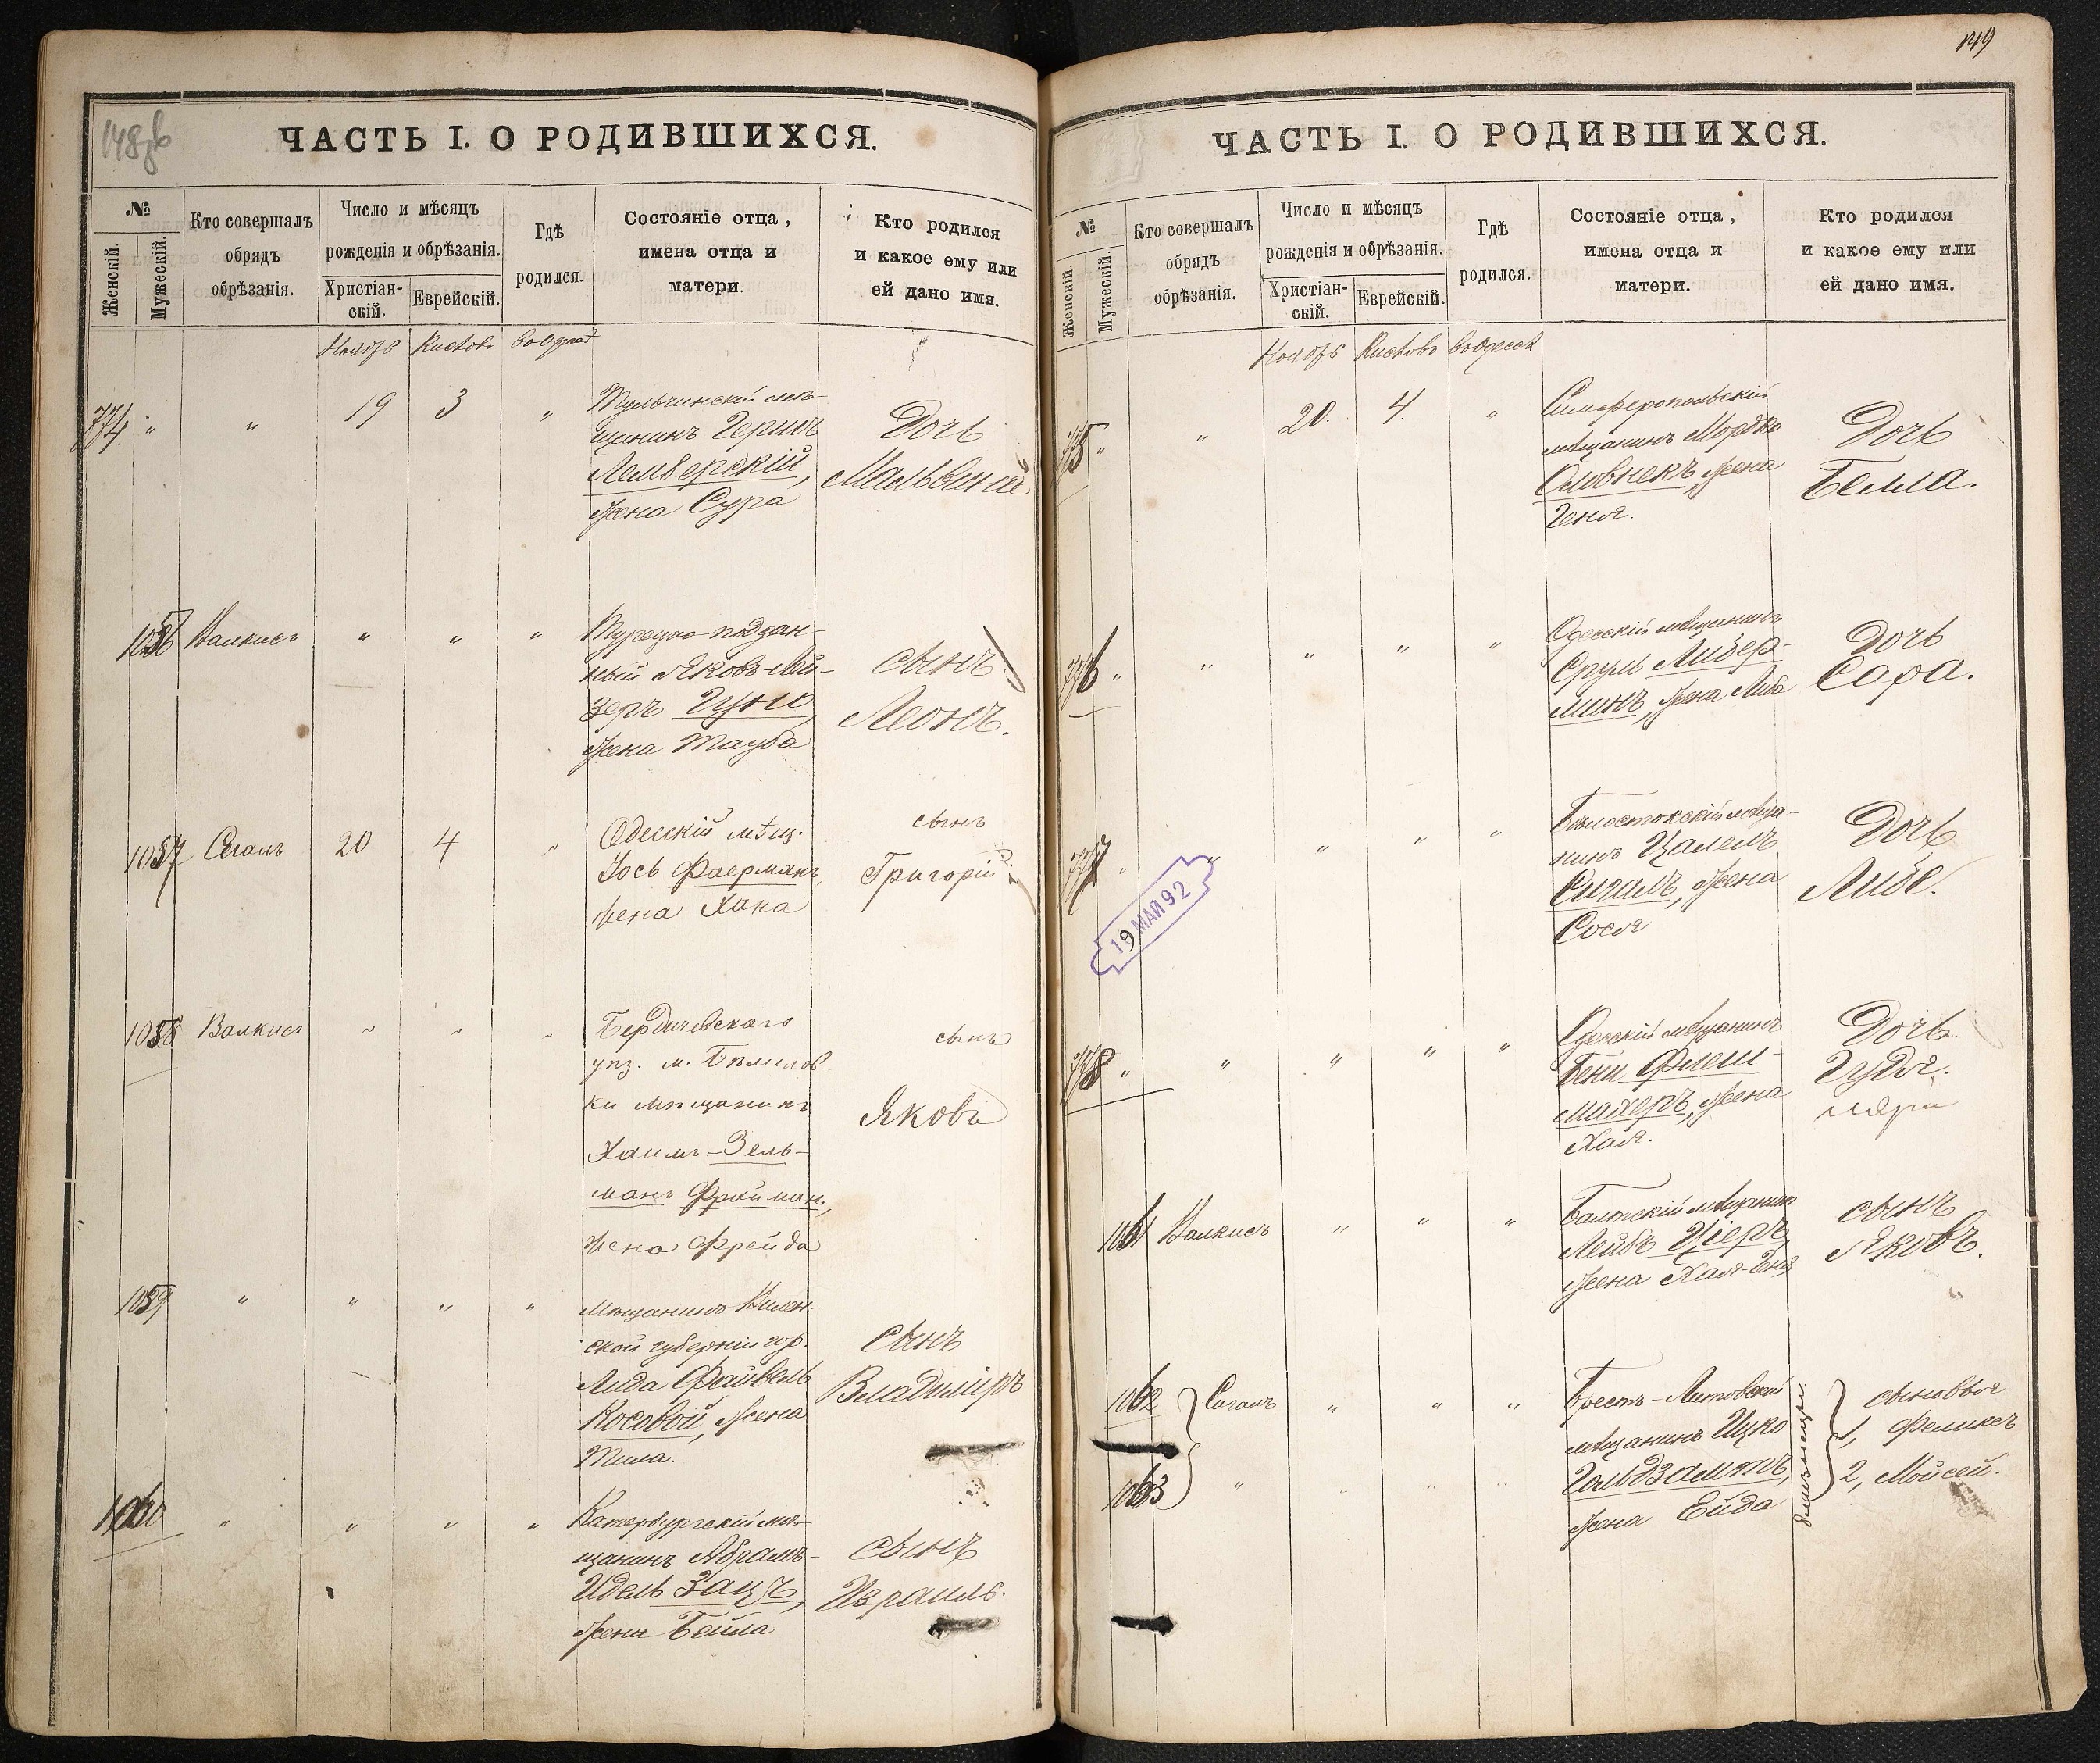 148об
ЧАСТЬ I. О РОДИВШИХСЯ.
№
Женскій.
Мужескій.
Кто совершалъ
обрядъ
обрѣзанія.
Число и мѣсяцъ
рожденія и обрѣзанія.
Христіан-
скій.
Еврейскій.
Гдѣ
родился.
Состояніе отца,
имена отца и
матери.
Кто родился
и какое ему или
ей дано имя.
Ноябрь Кислевъ въ Одессѣ
774 " " 19 3 "
Тульчинскій мѣ-
щанинъ Гершъ
Лембергскій,
жена Сура
Дочь
Мальвина
1056 Валкисъ " " "
Турецко-поддан-
ный Яковъ-Лей-
зеръ
жена Тауба
сынъ
Леонъ.
1057 Сегалъ 20 4 "
Одесскій мѣщ.
Іось Фаерманъ,
жена Хана
сынъ
Григорій
1058 Валкисъ " " "
Бердичевскаго
уѣз. м. Бѣлилов-
ки мѣщанинъ
Хаимъ-Зель-
манъ Фрайман.,
жена Фрейда
сынъ
Яковъ
1059 " " " "
Мѣщанинъ Вилен-
ской губерніи гор.
Лида Файвель
Косовой, жена
сынъ
Владиміръ
1060 " " " "
Катербургскій мѣ-
щанинъ Абрамъ-
Идель Зацъ,
жена Бейла
сынъ
Израиль.
149
ЧАСТЬ I. О РОДИВШИХСЯ.
№
Женскій.
Мужескій.
Кто совершалъ
обрядъ
обрѣзанія.
Число и мѣсяцъ
рожденія и обрѣзанія.
Христіан-
скій.
Еврейскій.
Гдѣ
родился.
Состояніе отца,
имена отца и
матери.
Кто родился
и какое ему или
ей дано имя.
Ноябрь Кислевъ въ Одессѣ
775 " " 20. 4. "
Симферопольскій
мѣщанинъ Мордко
жена
Геня.
Дочь
Белла.
776 " " " " "
Одесскій мѣщанинъ
Сруль Либер-
манъ, жена Либа
Дочь
Сара.
777 " " " " "
Бѣлостокскій мѣща-
нинъ Цалель
Сигалъ, жена
Сося
Дочь
Либе.
19 МАЙ 92
778 " " " " "
Одесскій мѣщанинъ
Бени Флеш-
махеръ, жена
Хая.
Дочь
Гудя.
1061 Валкисъ " " "
Балтскій мѣщанинъ
Лейбъ Ціеръ,
жена Хая-Геня
сынъ
Яковъ.
1062 Сегалъ " " "
1063 " " " "
Брестъ-Литовскій
мѣщанинъ Ицко
Гольдзамтъ,
жена Ейда
близнецы:
сыновья
1, Феликсъ
2, Мойсей.